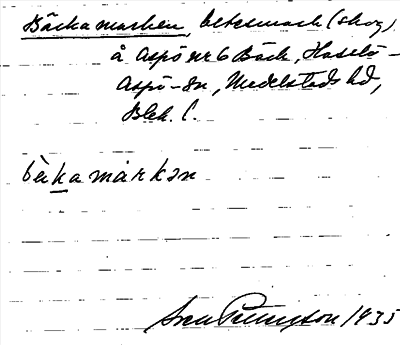 Bäckamarken, betesmark (skog)
å Aspö nr 6 Bäck, Hasslö-
Aspö-sn, Medelstads hd,
Blek. l.
bèkamárkən
Sven Pettersson 1935